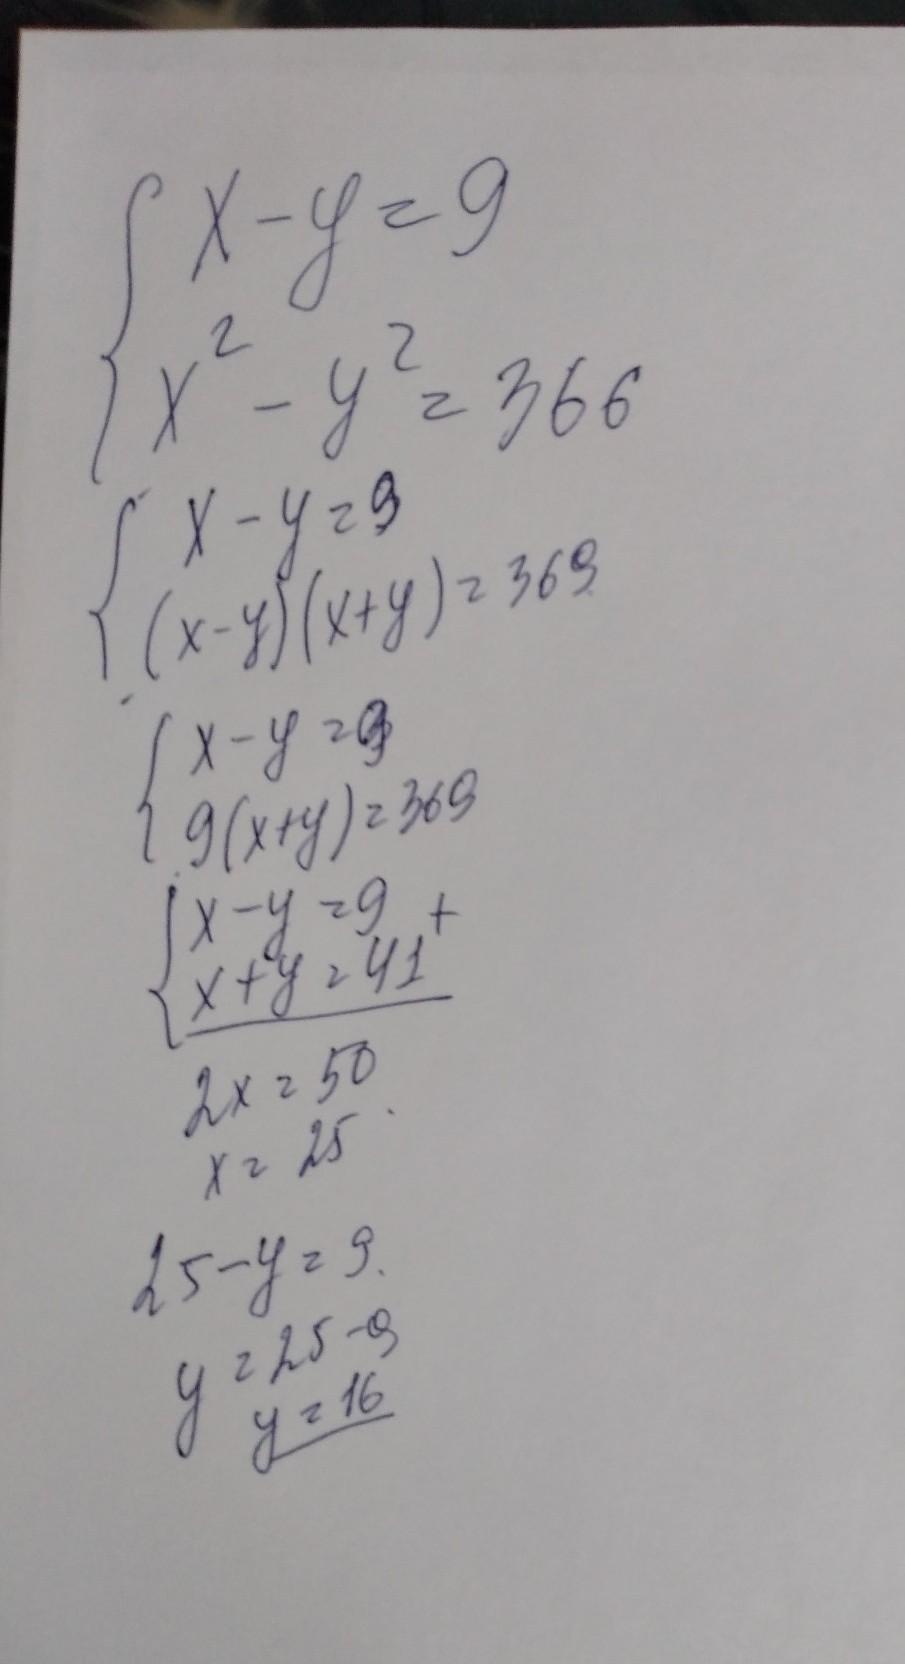 x-y=9
x²-y²=366
x-y=9
(x-y)(x+y)=369
x-y=9
9(x+y)=369
x-y=9 +
x+y=41
2x=50
x=25
25-y=9.
y=25-9
y=16